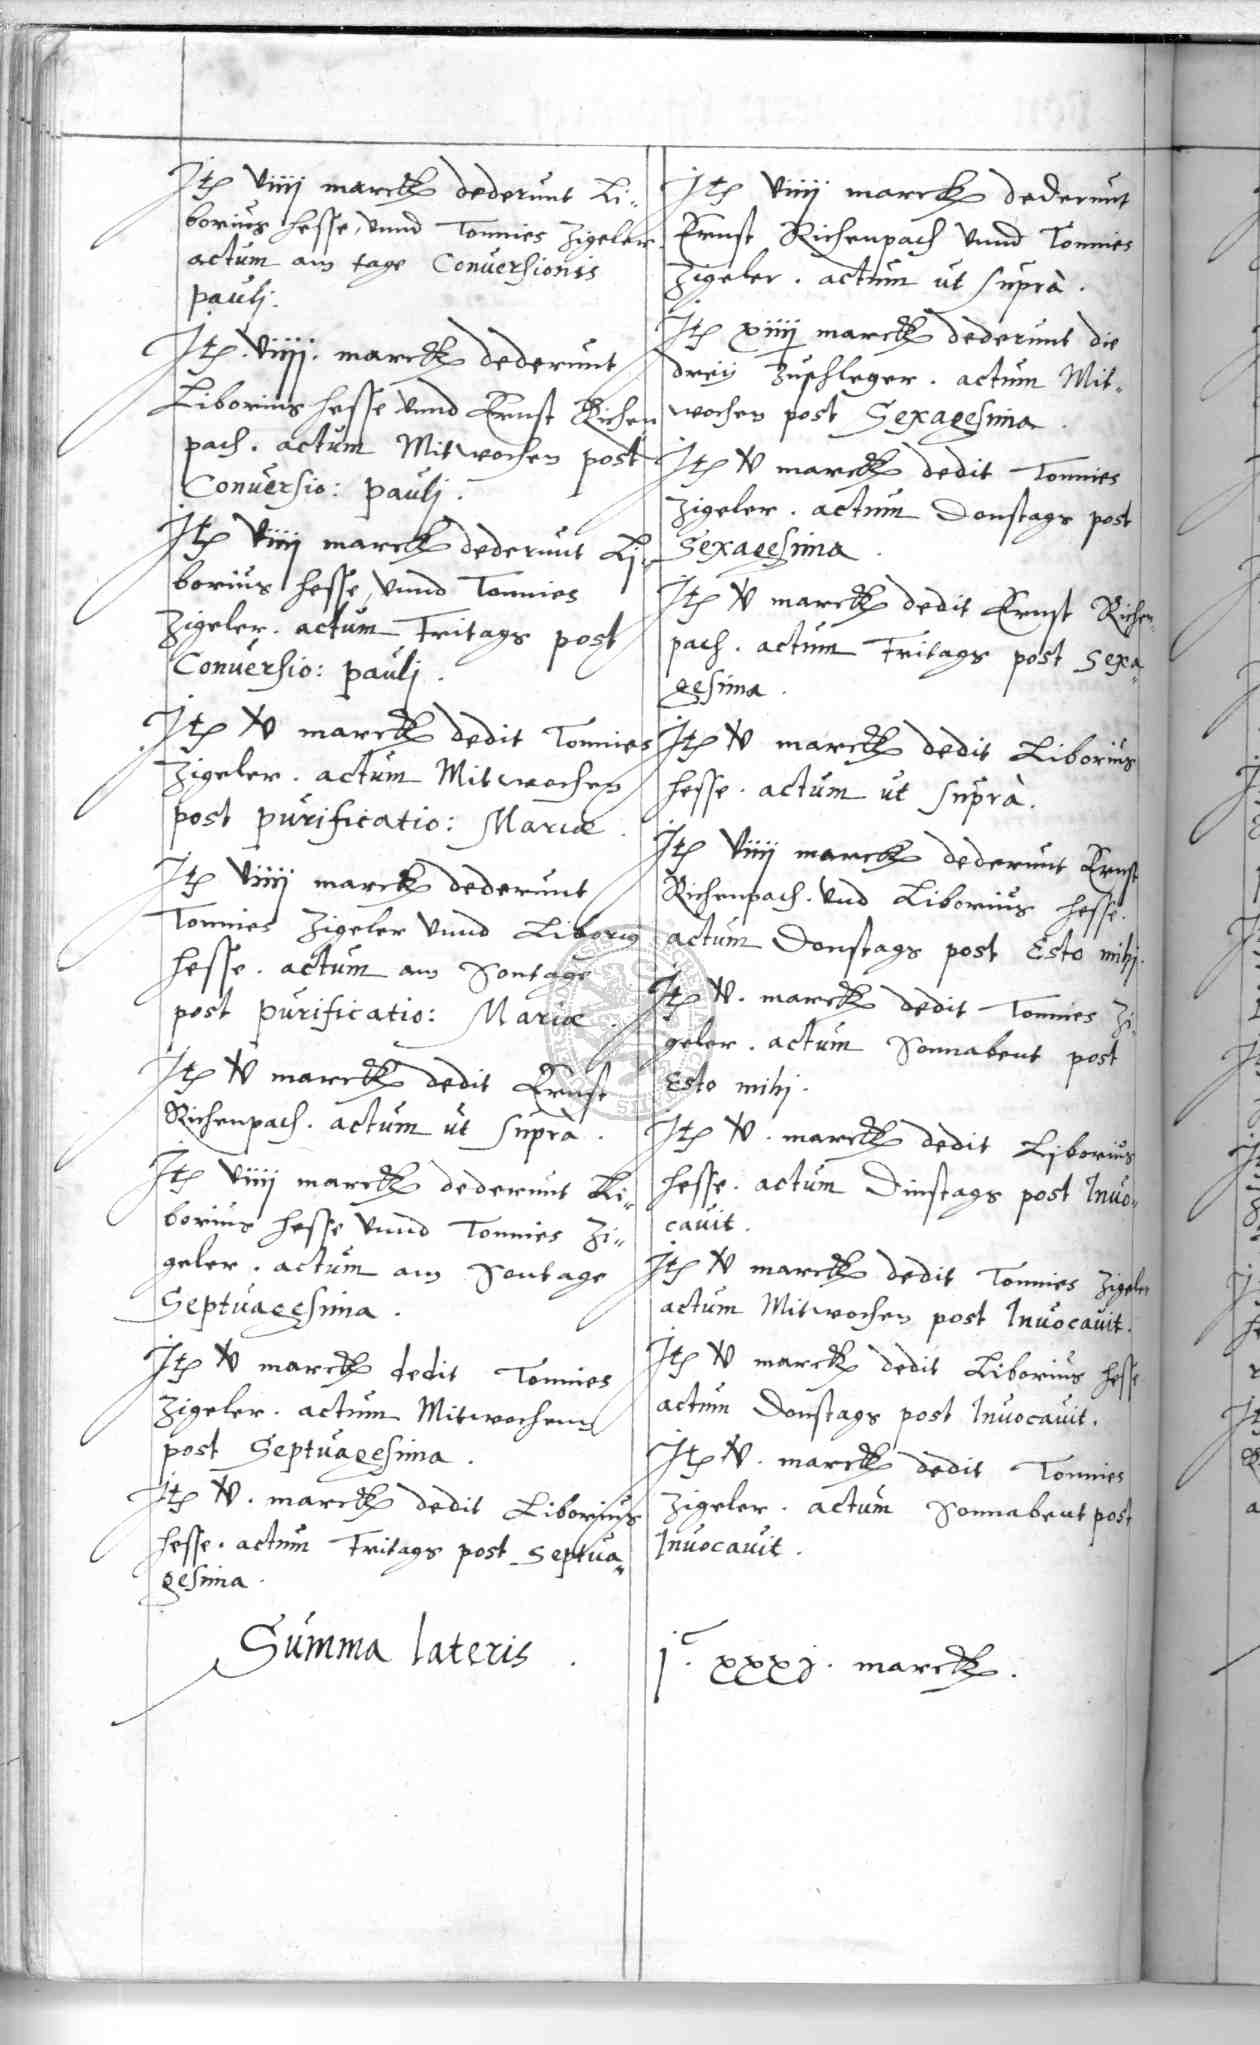 Itē viiij marck dederunt Li-
borius Hesse, vnnd Tonnies Zigeler
actum am tage Conuersionis
pauli.
Itē viiij. marck dederunt
Liborius Hesse vnnd Ernst Richen
pach. actum Mitwochen post
Conuersio: pauli.
Itē viiij marck dederunt Li-
borius Hesse, vnnd Tonnies
Zigeler. actum Fritags post
Conuersio: pauli.
Itē v̷ marck dedit Tonnies
Zigeler. actum Mitwochen
post purificatio: Mariæ.
Itē viiij marck dederunt
Tonnies Zigeler vnnd Liborius
Hesse. actum am Sontage
post purificatio: Mariæ.
Itē v̷ marck dedit Ernst
Richenpach. actum ut suprà.
Itē viiij marck dederunt Li-
borius Hesse vnnd Tonnies Zi-
geler. actum am Sontage
Septuagesima.
Itē v̷ marck dedit Tonnies
Zigeler. actum Mitwochenn
post Septuagesima.
Itē v̷. marck dedit Liborius
Hesse. actum Fritags post Septua-
gesima.
Summa lateris.
Itē viiij marck dederunt
Ernst Richenpach vnnd Tonnies
Zigeler. actum ut suprà.
Itē xiiij̷ marck dederunt die
dreij Zuschleger. actum Mit-
wochen post Sexagesima.
Itē v̷ marck dedit Tonnies
Zigeler. actum Donstags post
Sexagesima.
Itē v̷ marck dedit Ernst Richen-
pach. actum Fritags post Sexa-
gesima.
Itē v̷ marck dedit Liborius
Hesse. actum ut suprà.
Itē viiij marck dederunt Ernst
Richenpach. vnd Liborius Hesse.
actum Donstags post Esto mihi.
Itē v̷. marck dedit Tonnies Zi-
geler. actum Sonnabent post
Esto mihi.
Itē v̷. marck dedit Liborius
Hesse. actum Dinstags post Inuo-
cauit.
Itē v̷ marck dedit Tonnies Zigeler
actum Mitwochen post Inuocauit.
Itē v̷ marck dedit Liborius Hesse
actum Donstags post Inuocauit.
Itē v̷. marck dedit Tonnies
Zigeler. actum Sonnabent post
Inuocauit.
jᶜ. xxxj̷. marck.